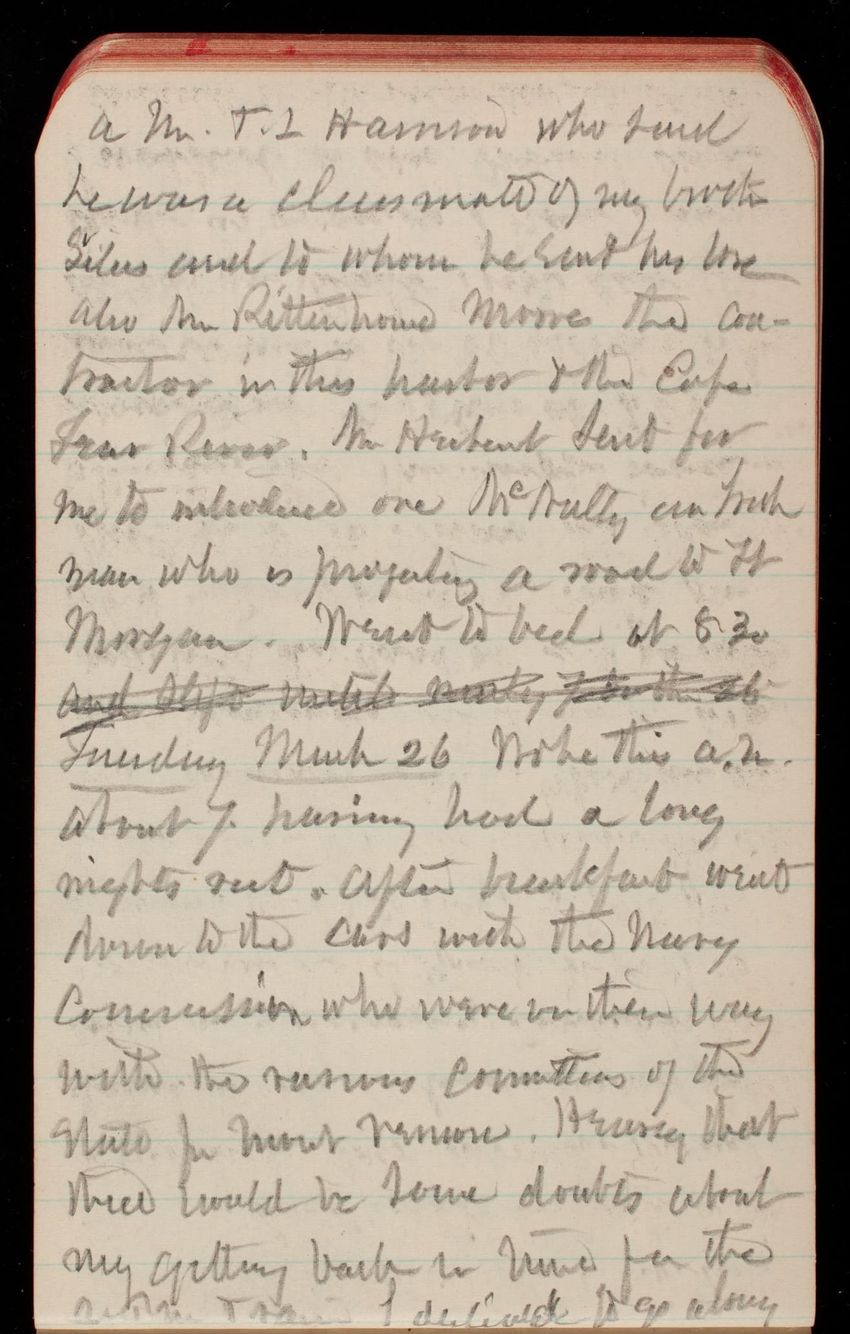 a Mr. T. L Harrison who said
he was a classmate of my broth
Silas and to whom he sent his love
also Mr Rittenhouse Moore the con-
tractor in this harbor & the Cape
Fear River. Mr Herbert sent for
me to introduce one McNulty an Irish
man who is projecting a road to Ft
Morgan. Went to bed at 8 30
and slept until nearly 7 on the 26
Tuesday March 26 Woke this a.m.
about 7. having had a long
nights rest. After breakfast went
down to the cars with the Navy
Commission who were on their way
with the various committees of the
State for Mount Vernon. Hearing that
there would be some doubts about
my getting back in time for the
train I decided to go along